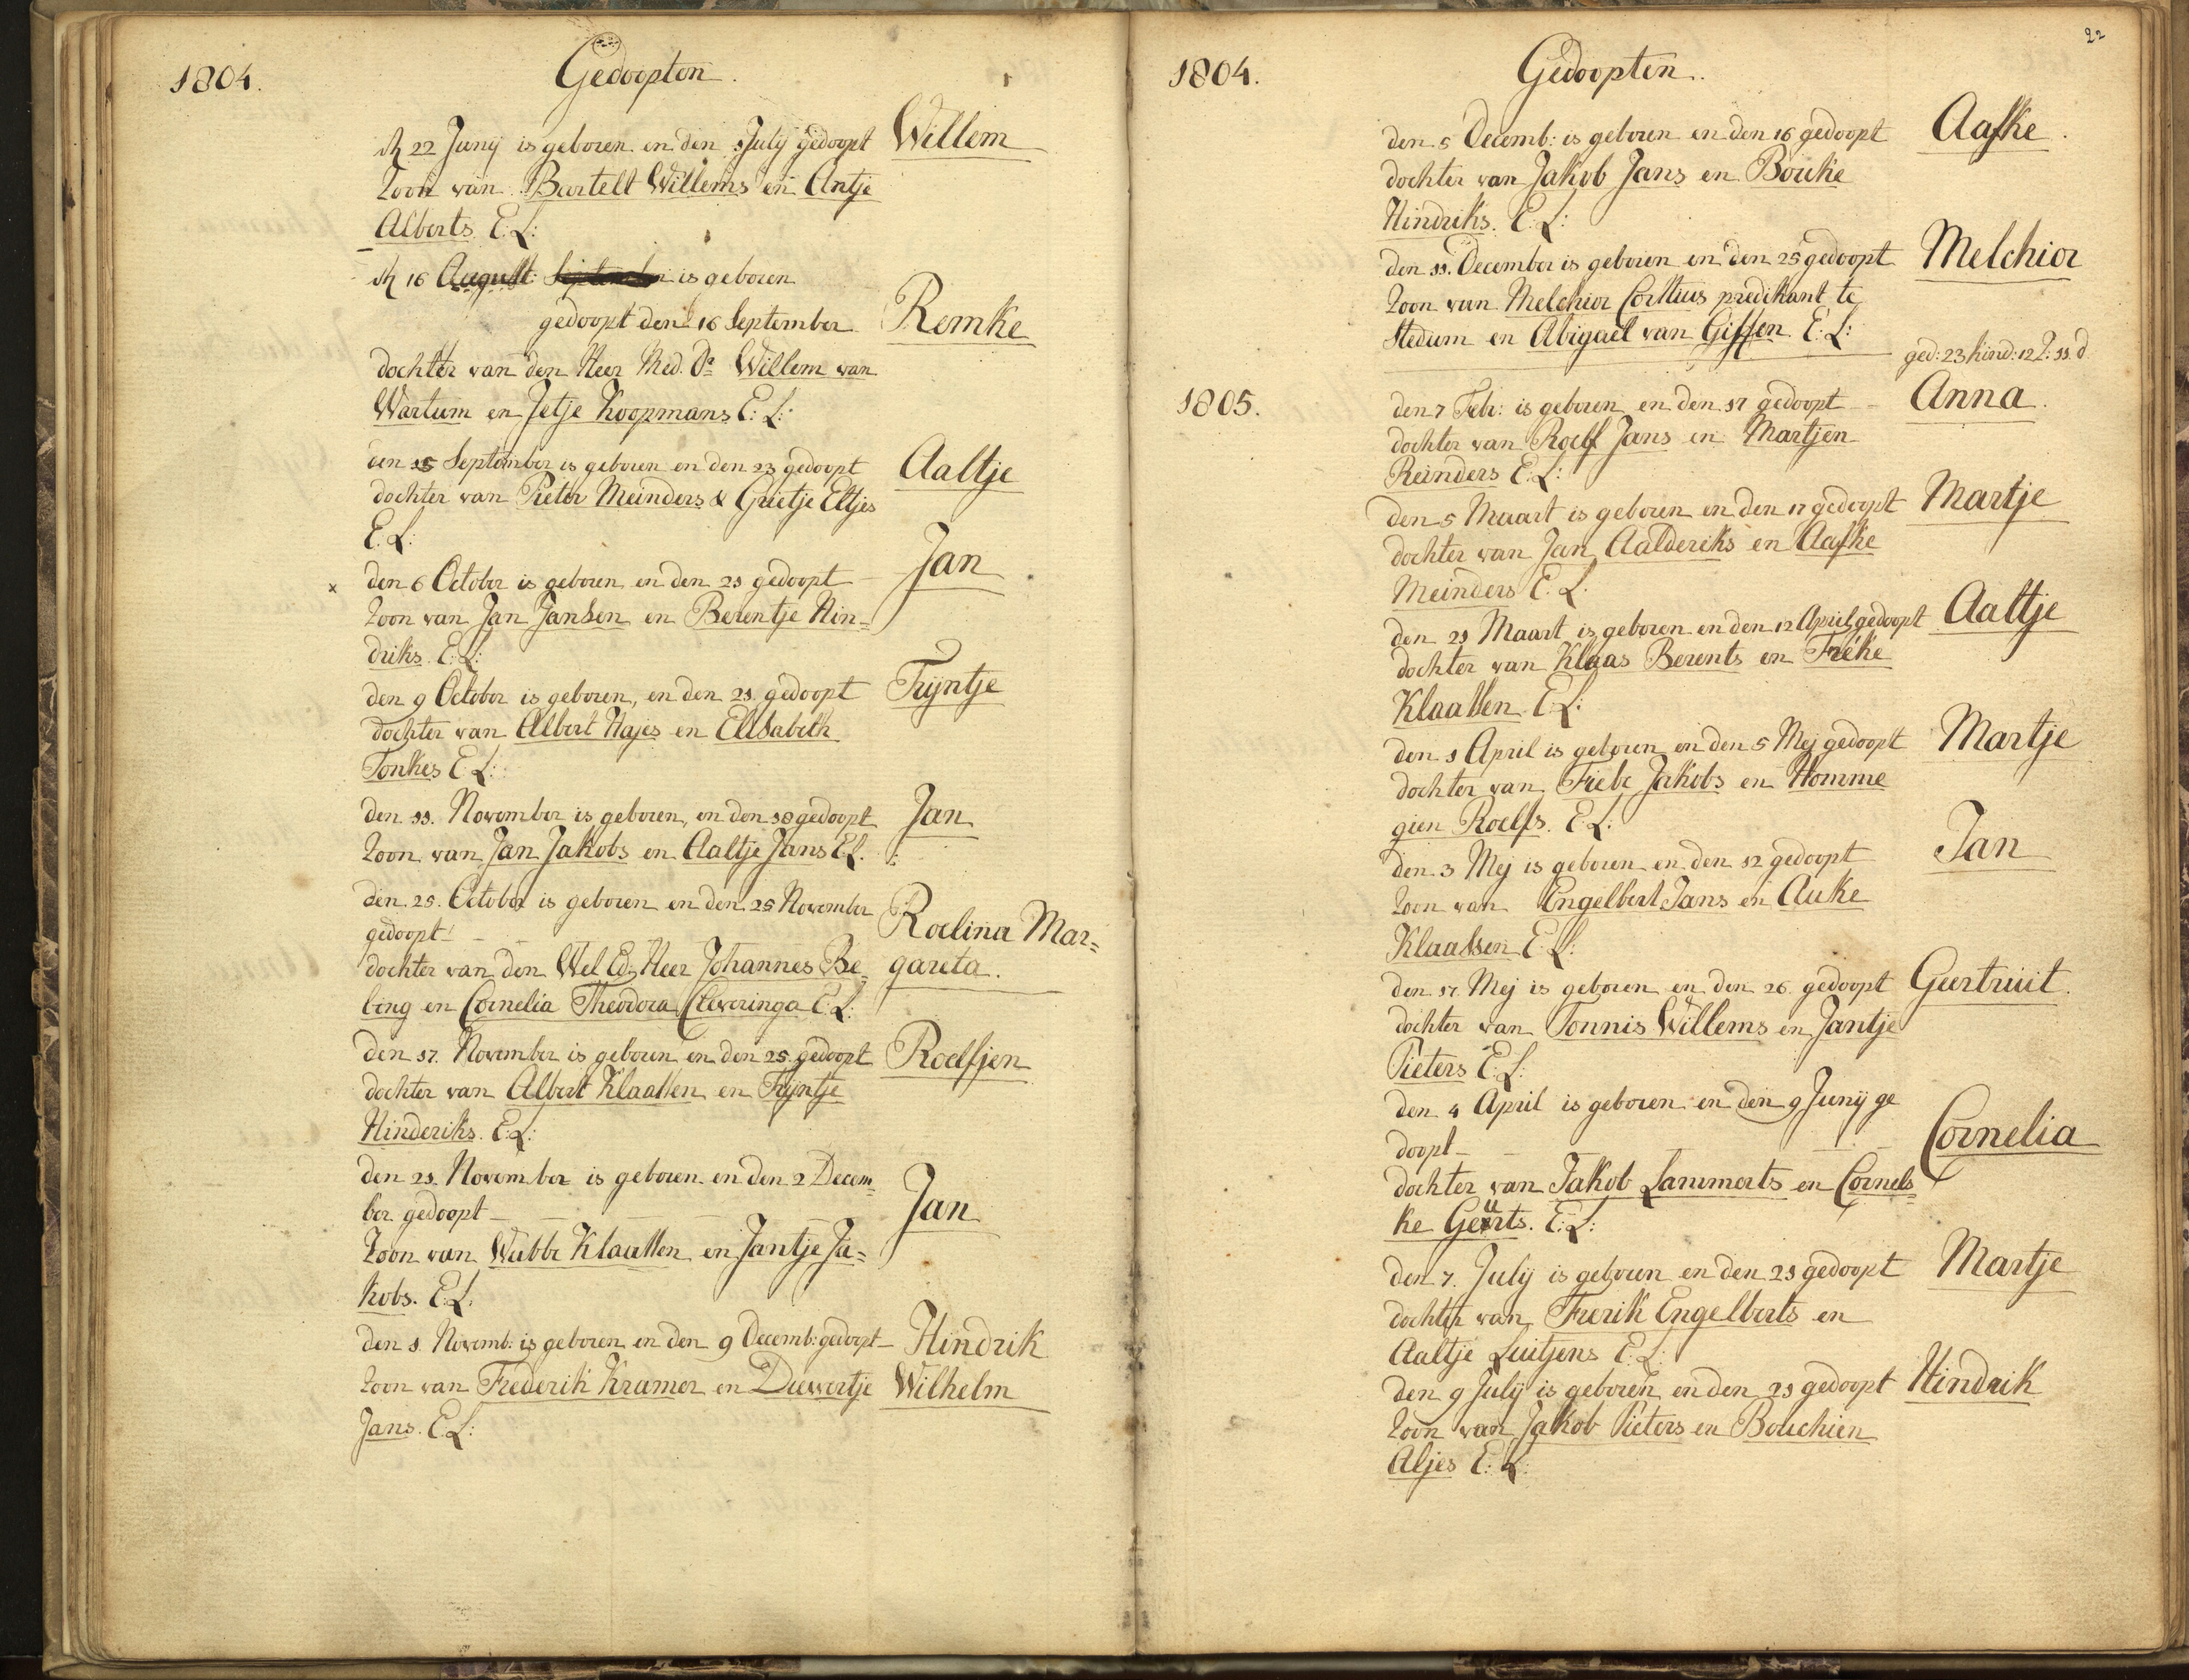 1804.
Gedoopten.
dn 22 Junij is geboren en den 1 Julij gedoopt Willem
Zoon van Bartelt Willems en Antje
Alberts. E: L:
dn 16 August: is geboren
gedoopt den 16 September Remke
dochter van den Heer Med. Dr Willem van
Wartum en Jetje Koopmans E: L:
den 15 September is geboren en den 23 gedoopt Aaltje
dochter van Pieter Meinders & Grietje Eltjes
E. L:
x den 6 October is geboren en den 21 gedoopt Jan
Zoon van Jan Jansen en Berentje Hin=
driks. E: L:
den 9 October is geboren, en den 21 gedoopt Trijntje
dochter van Albert Hajes en Elisabeth
Tonkes E L:
den 11. November is geboren, en den 18 gedoopt Jan
Zoon van Jan Jakobs en Aaltje Jans E L.
den 25. October is geboren en den 25 November
gedoopt Roelina Mar=
dochter van den Wel Ed. Heer Johannes Be= gareta.
bing en Cornelia Theodora Cleveringa E: L:
den 17. November is geboren en den 25. gedoopt Roelfjen
dochter van Albert Klaassen en Trijntje
Hinderiks. E: L:
den 21. November is geboren en den 2 Decem=
ber gedoopt Jan
Zoon van Wubbe Klaassen en Jantje Ja=
kobs. E: L.
den 1 Novemb: is geboren en den 9 Decemb: gedoopt Hindrik
Zoon van Frederik Kramer en Diewertje Wilhelm
Jans. E L:
22
1804.
Gedoopten.
den 5 Decemb: is geboren en den 16 gedoopt Aafke.
dochter van Jakob Jans en Bouke
Hindriks. E: L:
den 11. December is geboren en den 25 gedoopt Melchior
Zoon van Melchior Corstius predikant te
Stedum en Abigael van Giffen. E: L:
ged: 23 kind: 12 Z: 11 d.
1805.
den 7 Febr: is geboren en den 17 gedoopt Anna.
dochter van Roelf Jans en Martjen
Reinders E: L:
den 5 Maart is geboren en den 17 gedoopt Martje
dochter van Jan Aalderiks en Aafke
Meinders E: L.
den 21 Maart is geboren en den 12 April gedoopt Aaltje
dochter van Klaas Berents en Freke
Klaassen. E: L:
den 1 April is geboren en den 5 Mej gedoopt Martje
dochter van Fiebe Jakobs en Homme
gien Roelfs. E: L:
den 3 Mej is geboren en den 12 gedoopt Jan
Zoon van Engelbert Jans en Auke
Klaassen E: L:
den 17. Mej is geboren en den 26. gedoopt Geertruit.
dochter van Tonnis Willems en Jantje
Pieters E: L:
den 4 April is geboren en den 9 Junij ge
doopt Cornelia
dochter van Jakob Lammerts en Cornels=
ke Geurts. E: L:
den 7. Julij is geboren en den 21 gedoopt Martje
dochter van Frerik Engelberts en
Aaltje Luitjens E: L:
den 9 Julij is geboren en den 21 gedoopt Hindrik
Zoon van Jakob Pieters en Bouchien
Aljes E: L: